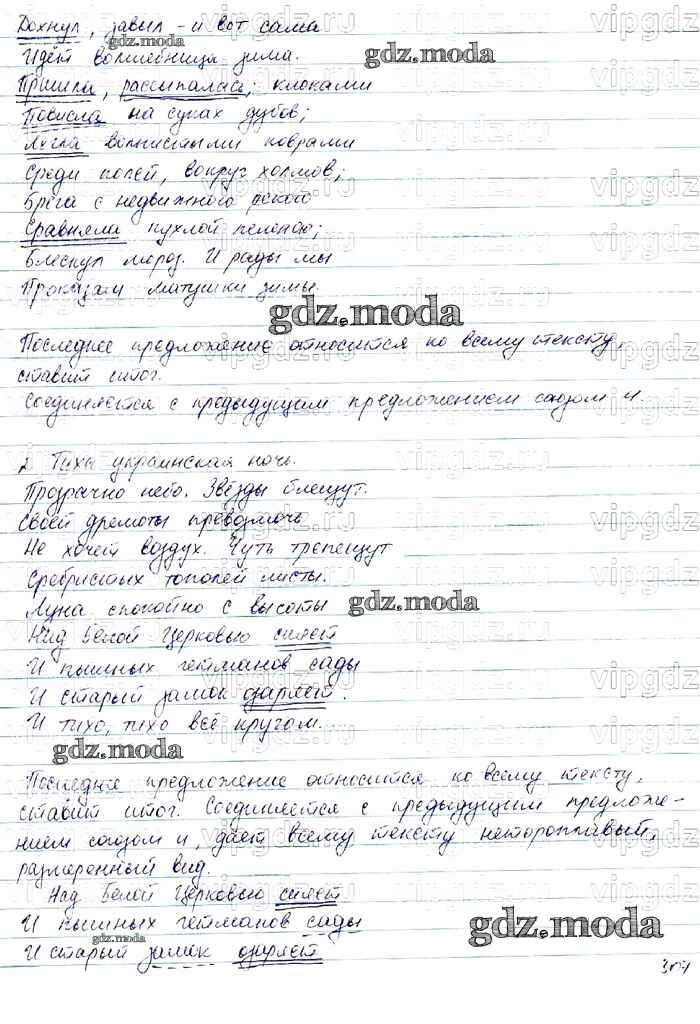 Дохнул, завыл - и вот сама
Идёт волшебница зима.
Пришла, рассыпалась; клоками
Повисла на суках дубов;
Легла волнистыми коврами
Среди полей, вокруг холмов;
Брега с недвижною рекою
Сравняла пухлой пеленою;
Блеснул мороз. И рады мы
Проказам матушки зимы.
gdz.moda
Последнее предложение относится ко всему тексту,
ставит итог.
Соединяется с предыдущим предложением союзом и
2. Тиха украинская ночь.
Прозрачно небо. Звёзды блещут.
Своей дремоты превозмочь
Не хочет воздух. Чуть трепещут
Сребристых тополей листы.
Луна спокойно с высоты
gdz.moda
Над Белой Церковью сияет
И пышных гетманов сады
И старый замок озаряет.
И тихо, тихо всё кругом.
gdz.moda
Последнее предложение относится ко всему тексту,
ставит итог. Соединяется с предыдущим предложе-
нием союзом и, даёт всему тексту неторопливый,
размеренный вид.
Над Белой Церковью сияет
И пышных гетманов сады
gdz.moda
И старый замок озаряет